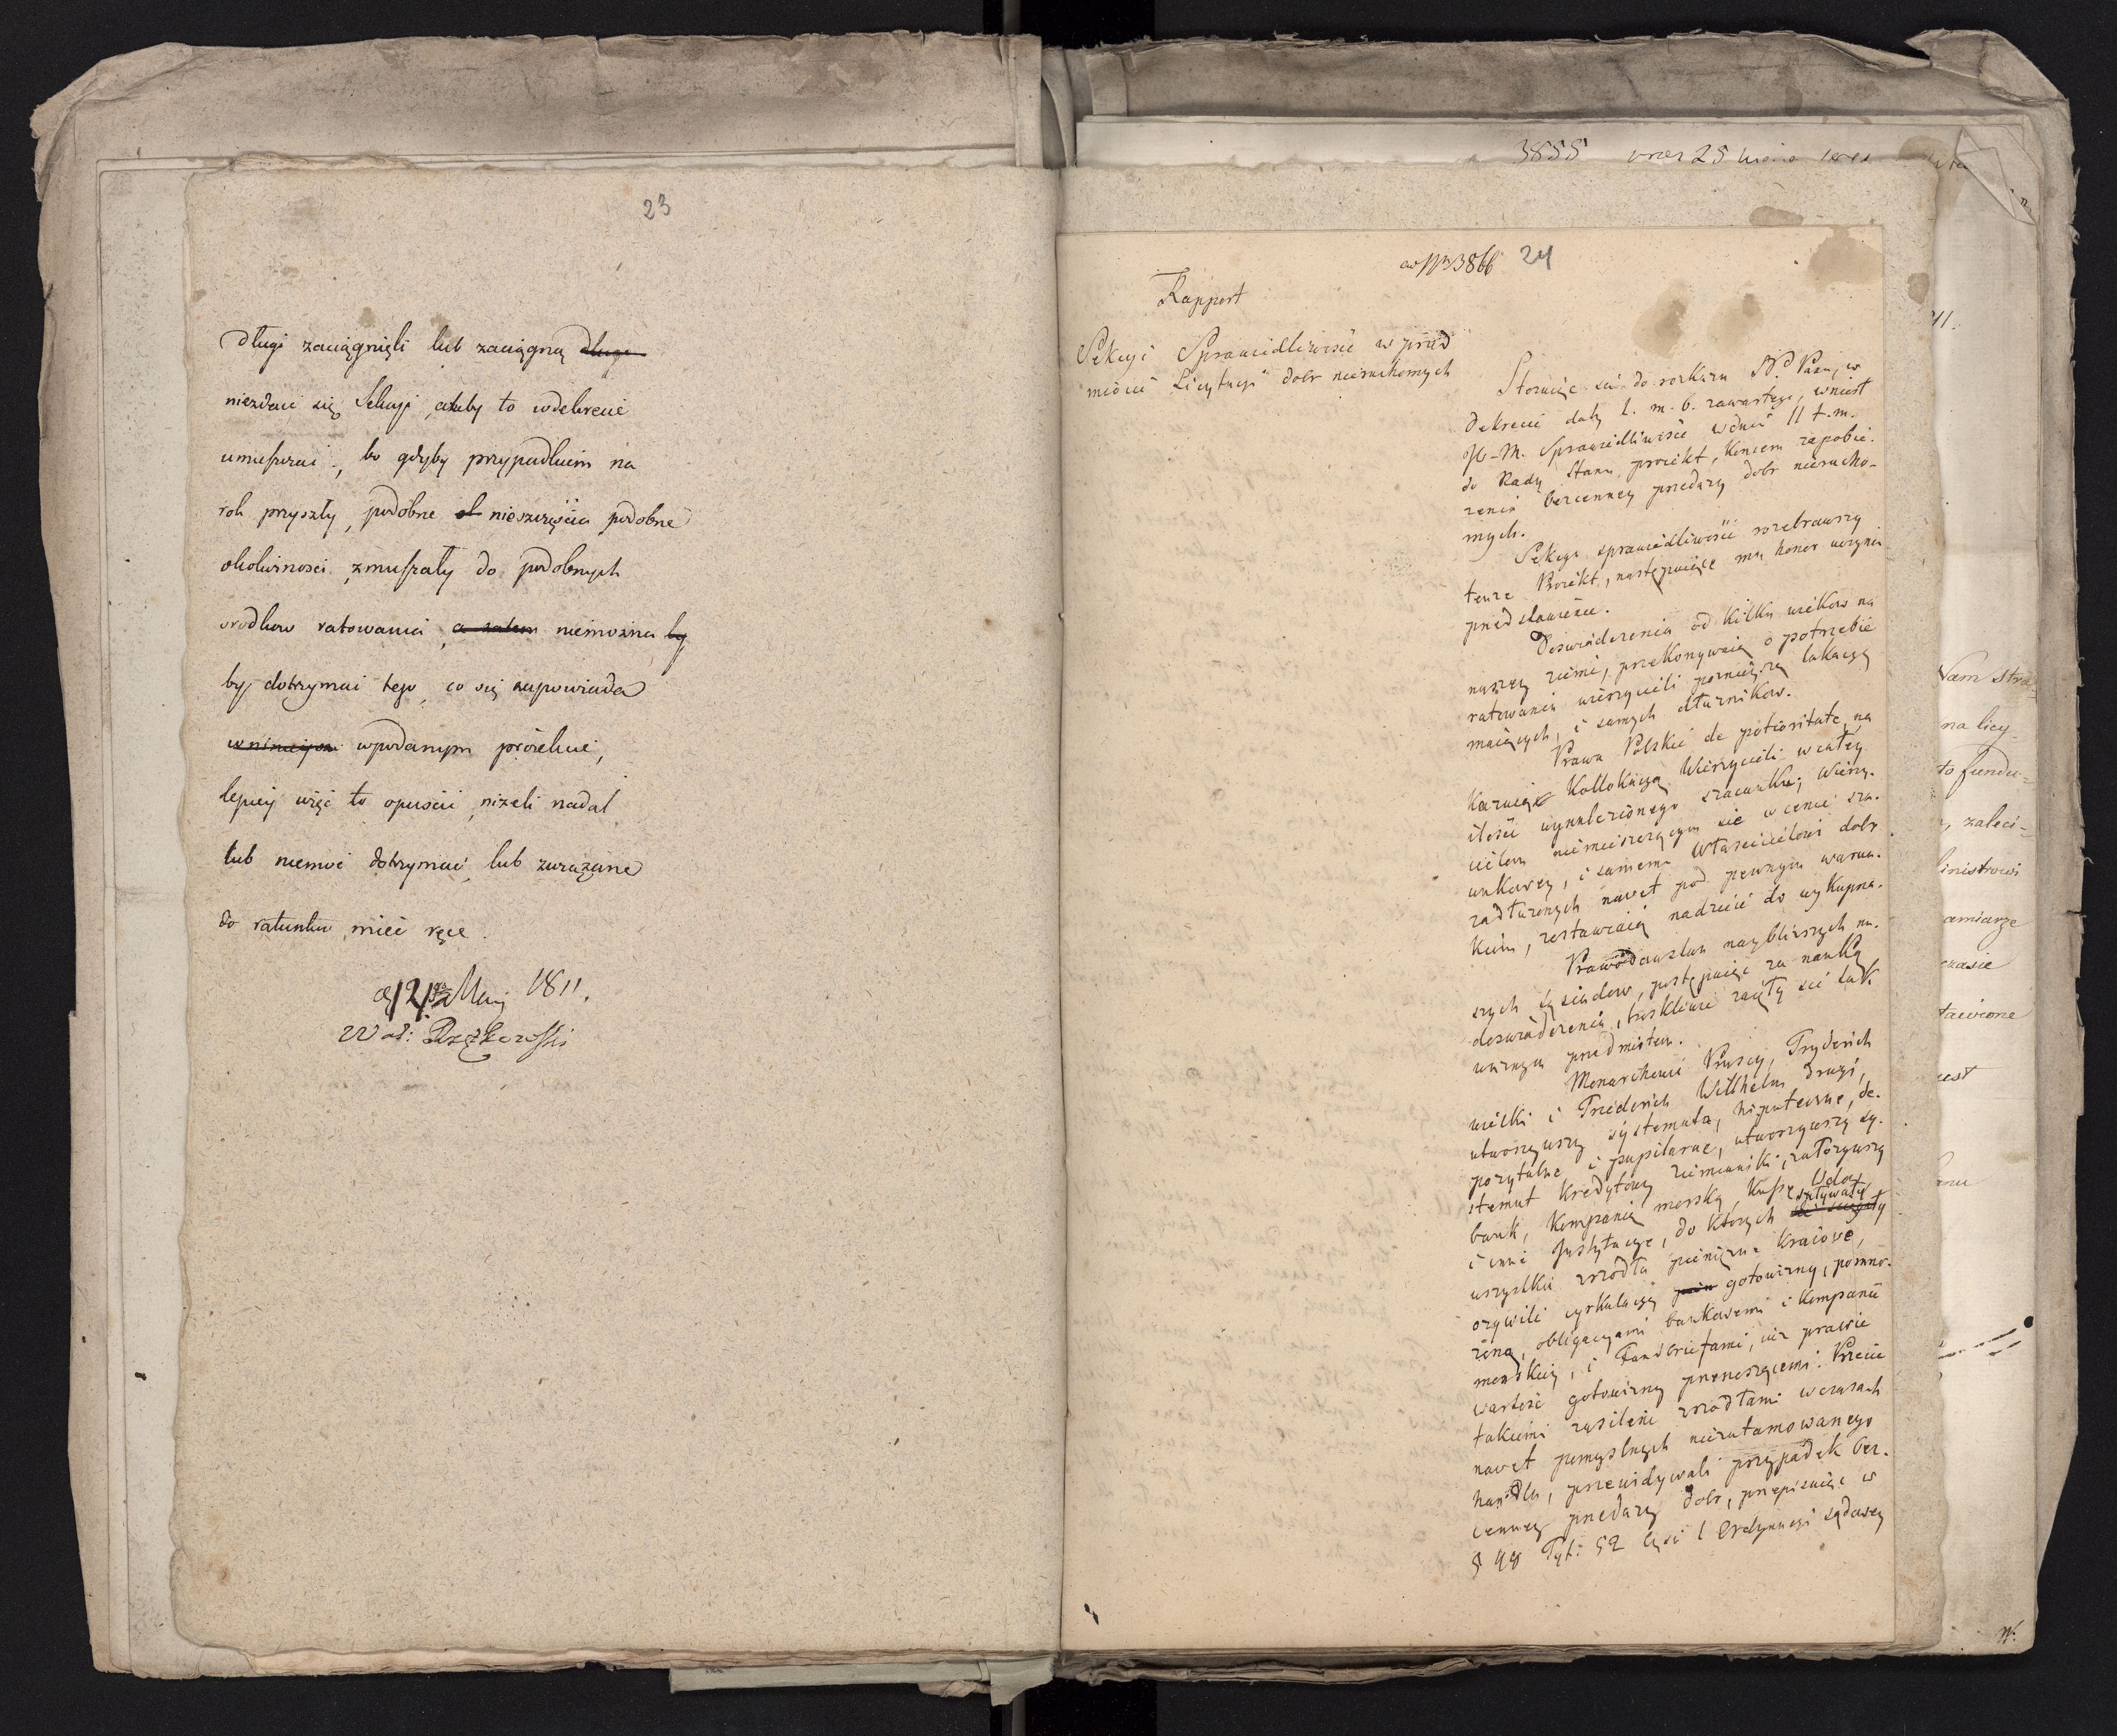 23
długi zaciągnięli lub zaciągną długi
niezdaie się Sekcyi ażeby to w dekrecie
umieszczać, bo gdyby przypadkiem na
rok przyszły, podobne ok nieszczęścia podobne
okoliczności zmuszały do podobnych
srodkow ratowania, a zatem niemożna by
by dotrzymać tego, co się zapowiada
w ninieyszem w podanym proiekcie,
lepiey więc to opuścić, niżeli nadal
lub niemoć dotrzymać, lub związane
do ratunku mieć ręce.
12 Maij 1811.
3855
24
3866
Rapport
Sekcyi Sprawiedliwości w przed
miocie Licytacyi dobr nieruchomych
Stosuiąc sie do rozkazu N. Pana, w
dekrecie daty 2. m. b. zawartego, wniosł
JW. M. Sprawiedliwości w dniu 11 t. m.
do Rady Stanu proiekt, koncem zapobie-
żenia bezcenney przedaży dobr nierucho-
mych.
Sekcya sprawiedliwości rozebrawszy
tenże Proiekt, następuiące ma honor uczynić
przedstawienie.
Doswiadczenia od kilku wiekow na
naszey ziemi, przekonywaią o potrzebie
ratowania wierzycieli pornieyszą lokacyą
maiących, i samych dłużnikow.
Prawa Polskie de potioritate, na
kazuiąc kollokacyą Wierzycieli w całey
ilości wynalezionego szacunku, wierzy-
cielom niemieszczącym sie w cenie sza-
unkowey, i samemu właścicielowi dobr
zadłużonych nawet pod pewnym warun-
kiem, zostawiaią nadzieię do wykupna.
Prawodawstwa naybliższych na-
szych sąsiadow, postępuiąc za nauką
doswiadczenia, troskliwie zaięły sie tak
ważnym przedmiotem.
Monarchowie Pruscy, Fryderich
wielki i Friederich Wilhelm drugi,
utworzywszy systemata, hipoteczne, de-
pozytalne i pupilarne, utworzywszy sy-
stemat kredytowy ziemianski, założywszy
bank, kompanią morską, kassę Wdow
i inne Instytucye, do ktorych spływały
wszystkie zrzodła pieniężne kraiowe,
ożywili cyrkulacyą gotowizny, pomno-
żoną obligacyami bankowemi i kompanii
morskiey, i Fandbriefami, niż prawie
wartość gotowizny przenoszącemi. Przecie
takiemi zasileni zrzodłami w czasach
nawet pomyslnych niezatamowanego
handlu, przewidywali przypadek bez-
cenney przedaży dobr, przepisuiąc w
§ 48 Tyt: 52 Częsci 1 Ordynacyi sądowey